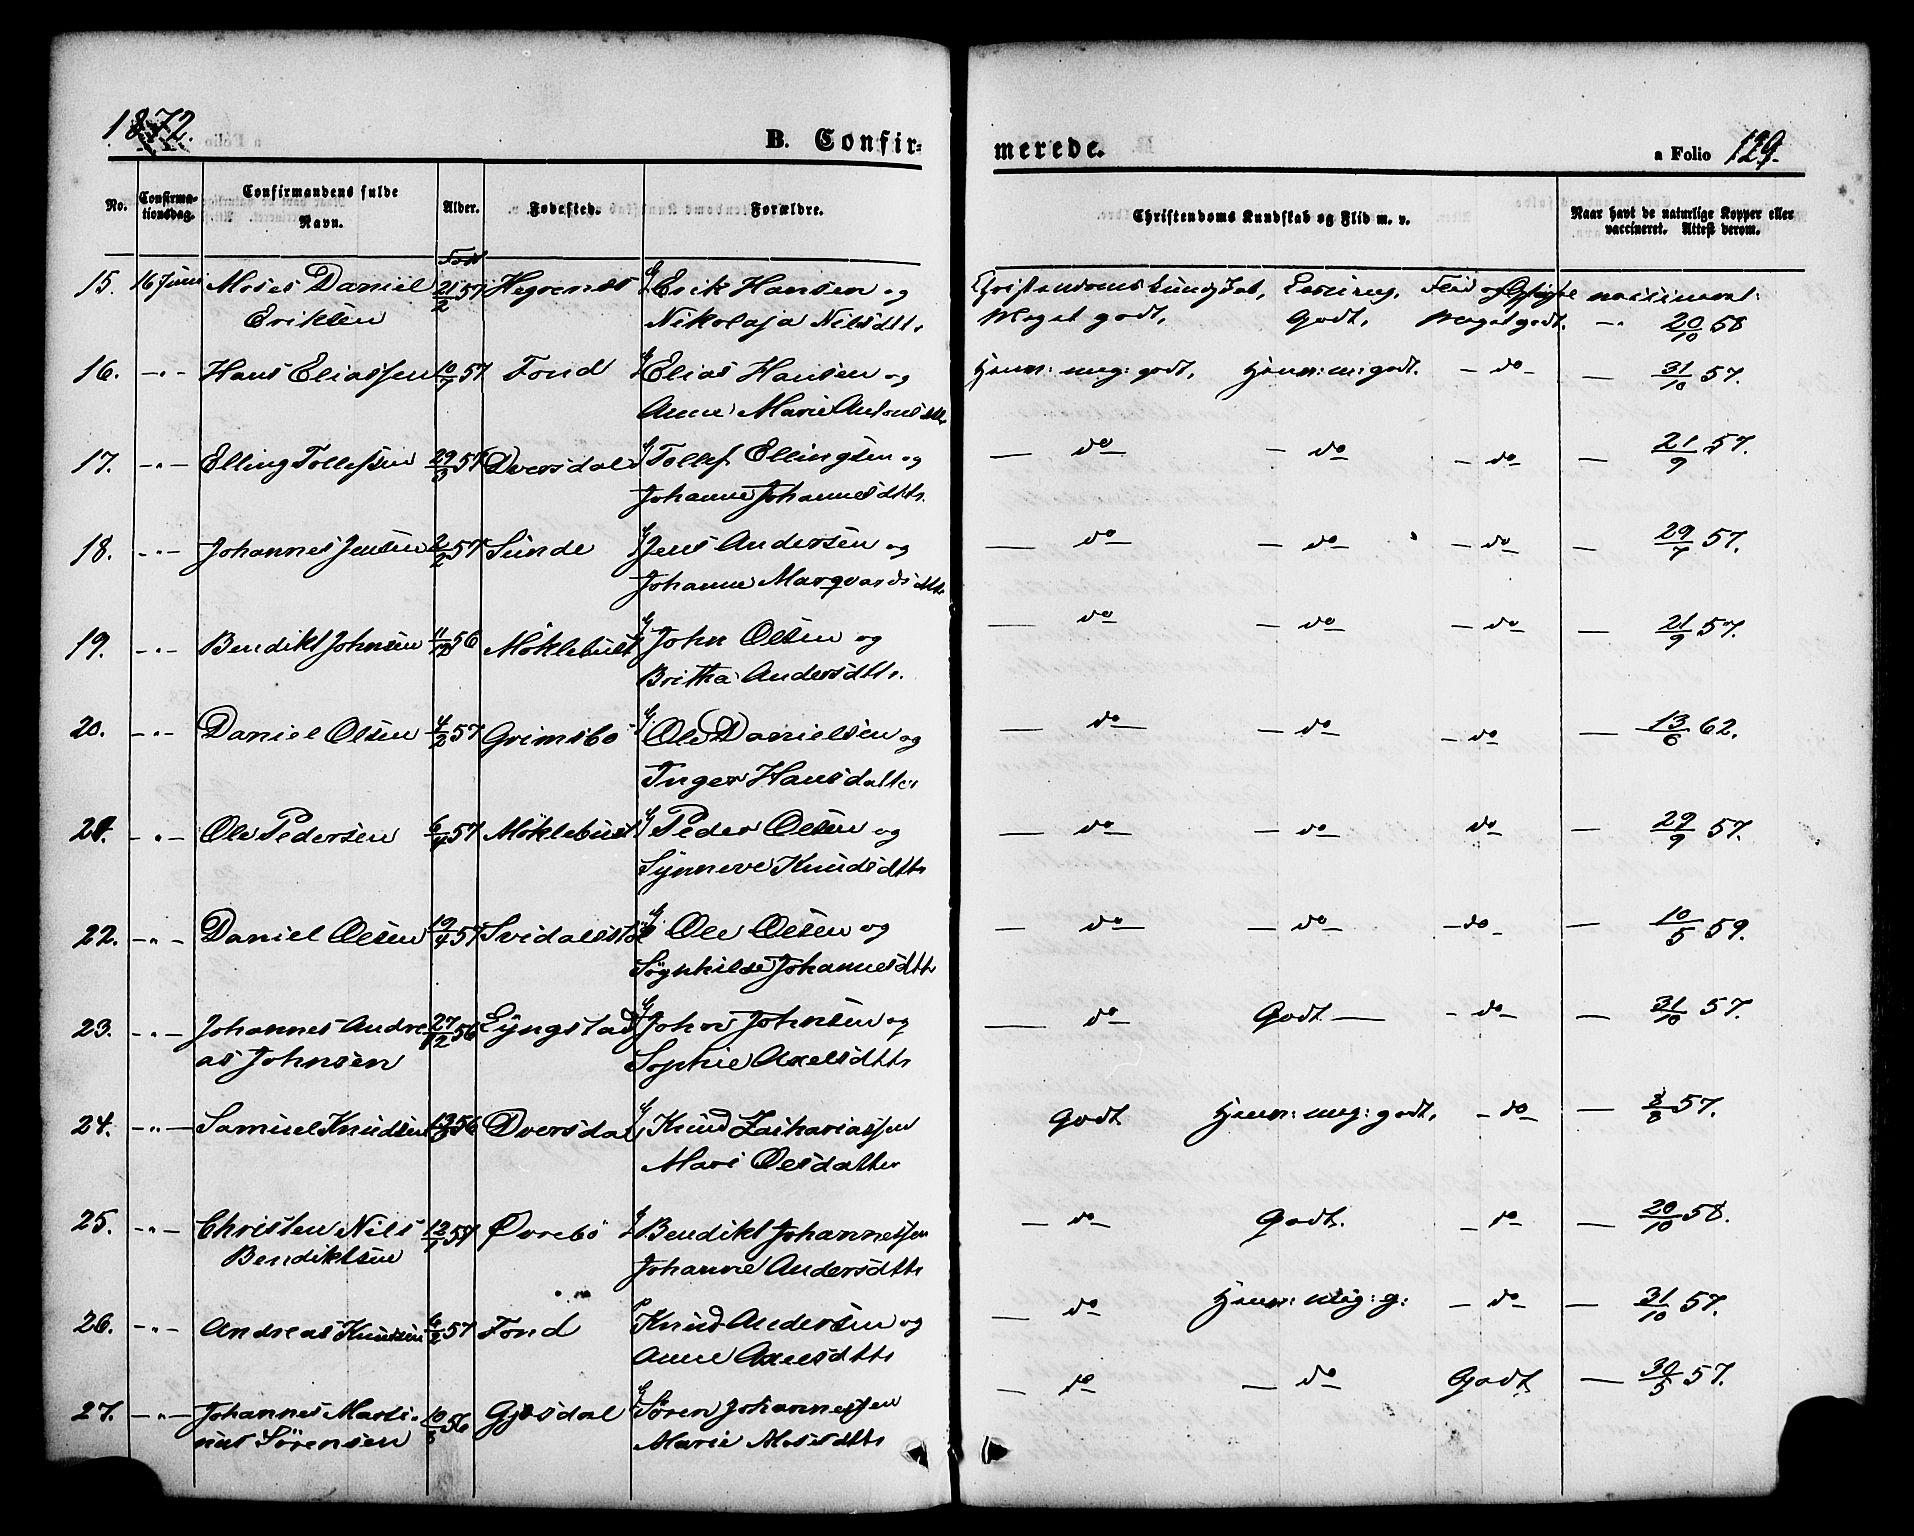 1872.
B. Confir-
merede.
a Folio 129.
No. Confirmationsdag. Confirmandens fulde Navn. Alder. Fødested. Forældre. Christendoms Kundskab og Flid m. v. Naar havt de naturlige Kopper eller vaccineret. Attest derom.
Født
15. 16 Juni Moses Daniel 21/2 57 Hegrenes Erik Hansen og Christendomskundskab, Evne, Flid og
Eriksen Nikolaja Nilsdtr. Meget godt, Godt, Meget godt. -"- 20/10 58
16. -"- Hans Eliassen 10/7 57 Fond Elias Hansen og Henim: meg: godt, Henim: m: godt. - do - — 31/10 57.
Anne Marie Antonsdtr
17. -"- Elling Tollefsen 29/3 57 Dversdal Tollef Ellingsen og — do — - do - do — 21/9 57.
Johanne Johannesdtr.
18. -"- Johannes Jensen 2/2 57 Sunde Jens Andersen og — do — - do - do — 29/7 57.
Johanne Marqvardsdtr
19. -"- Bendikt Johnsen 11/12 56 Møklebust John Olsen og — do — - do - do — 21/9 57.
Britha Andersdtr.
20. -"- Daniel Olsen 4/2 57 Grimsbø Ole Danielsen og — do — - do - do — 13/6 62.
Inger Hansdatter
21. -"- Ole Pedersen 6/4 57 Møklebust Peder Olsen og — do — - do do — 29/9 57.
Synneve Knudsdtr
22. -"- Daniel Olsen 19/4 57 Svidalsstøl Ole Olsen og — do — - do - do - — 10/5 59.
Søgnhilde Johannesdtr
23. -"- Johannes Andre- 27/12 56 Lyngstad John Johnsen og — do Godt — - do — 31/10 57.
as Johnsen Sophie Axelsdtr
24. -"- Samuel Knudsen 56 Dversdal Knud Zachariassen Godt Henim: meg: godt, - do — 57.
Mari Olsdatter
25. -"- Christen Nils 12/7 57 Øvrebø Bendikt Johannessen — do Godt. - do — 20/10 58.
Bendiktsen Johanne Andersdtr
26. -"- Andreas Knudsen 6/2 57 Fond Knud Andersen og — do Henim: meg: g: - do - — 31/10 57.
Anne Axelsdtr
27. -"- Johannes Marti- 10/8 56 Gjesdal Søren Johannessen — do — do Godt — 30/5 57.
nus Sørensen Marie Mosesdtr